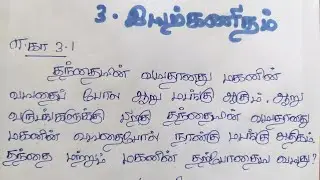 3. இயற்கணிதம்
எ.கா 3.1
தந்தையின் வயதானது மகனின்
வயதைப் போல ஆறு மடங்கு ஆகும். ஆறு
வருடங்களுக்கு பிறகு தந்தையின் வயதானது
மகனின் வயதைபோல் நான்கு மடங்கு அதிகம்.
தந்தை மற்றும் மகனின் தற்போதைய வயது?